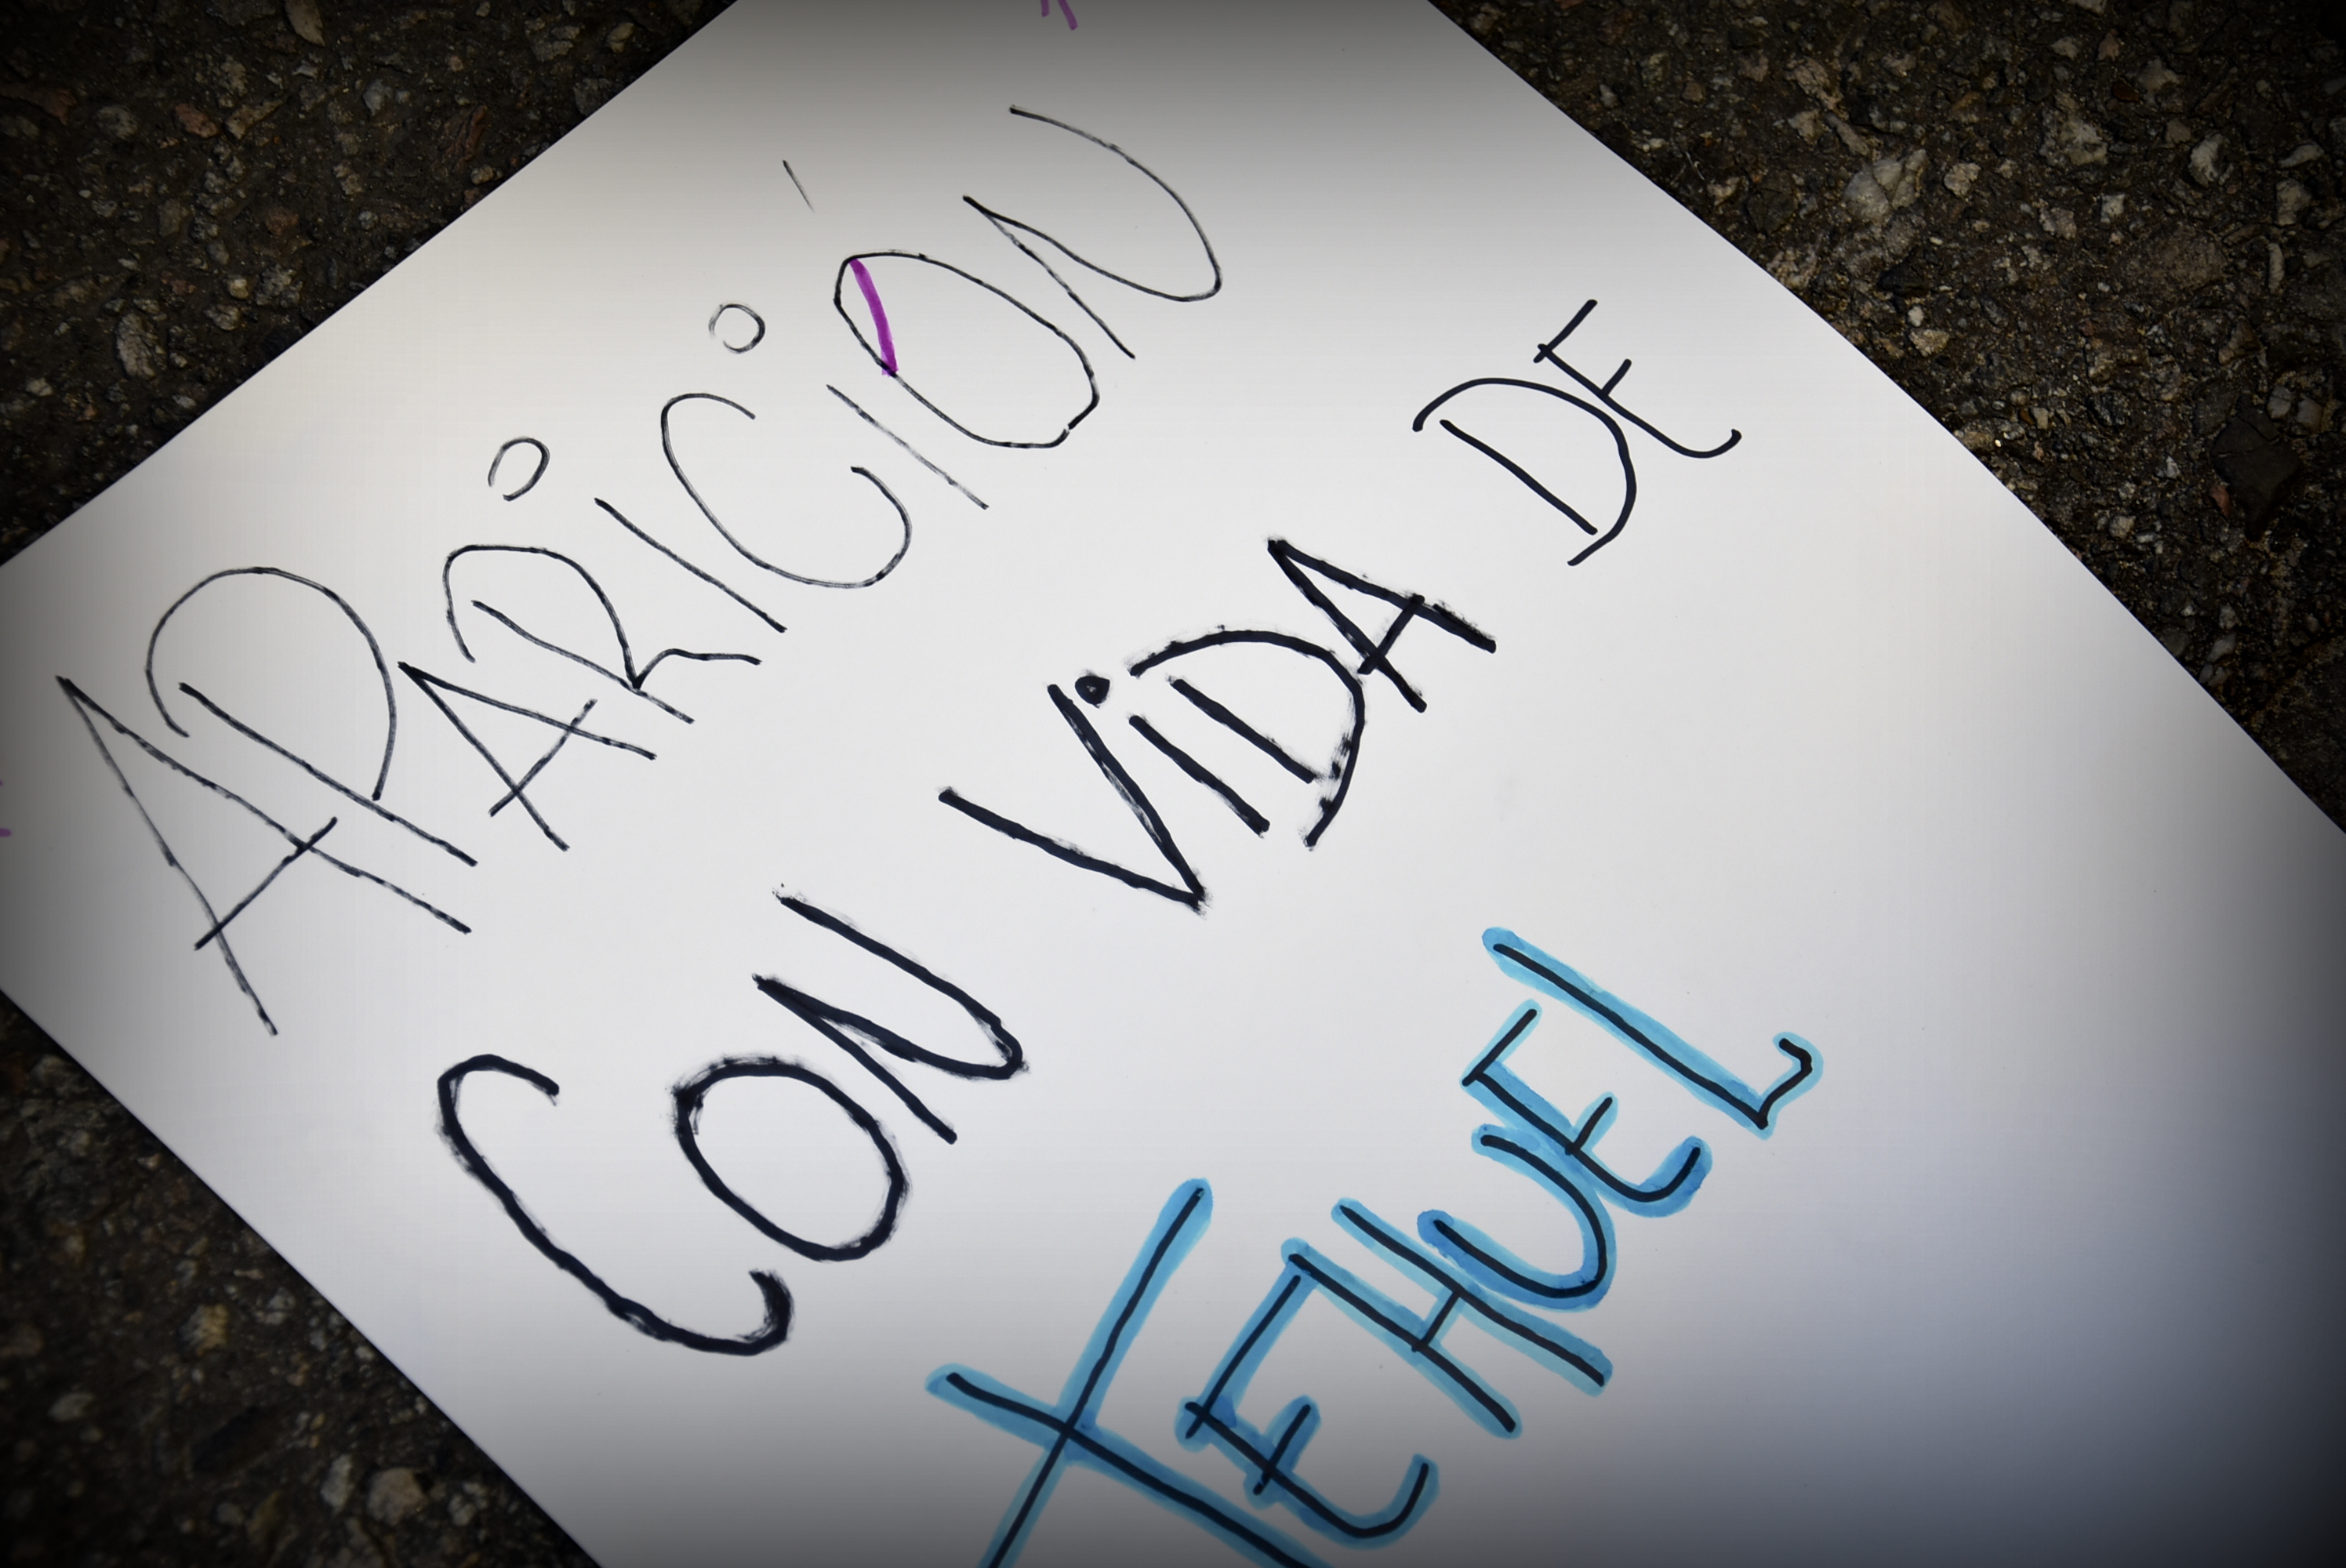 APARICIÓN
CON VIDA DE
TEHUEL